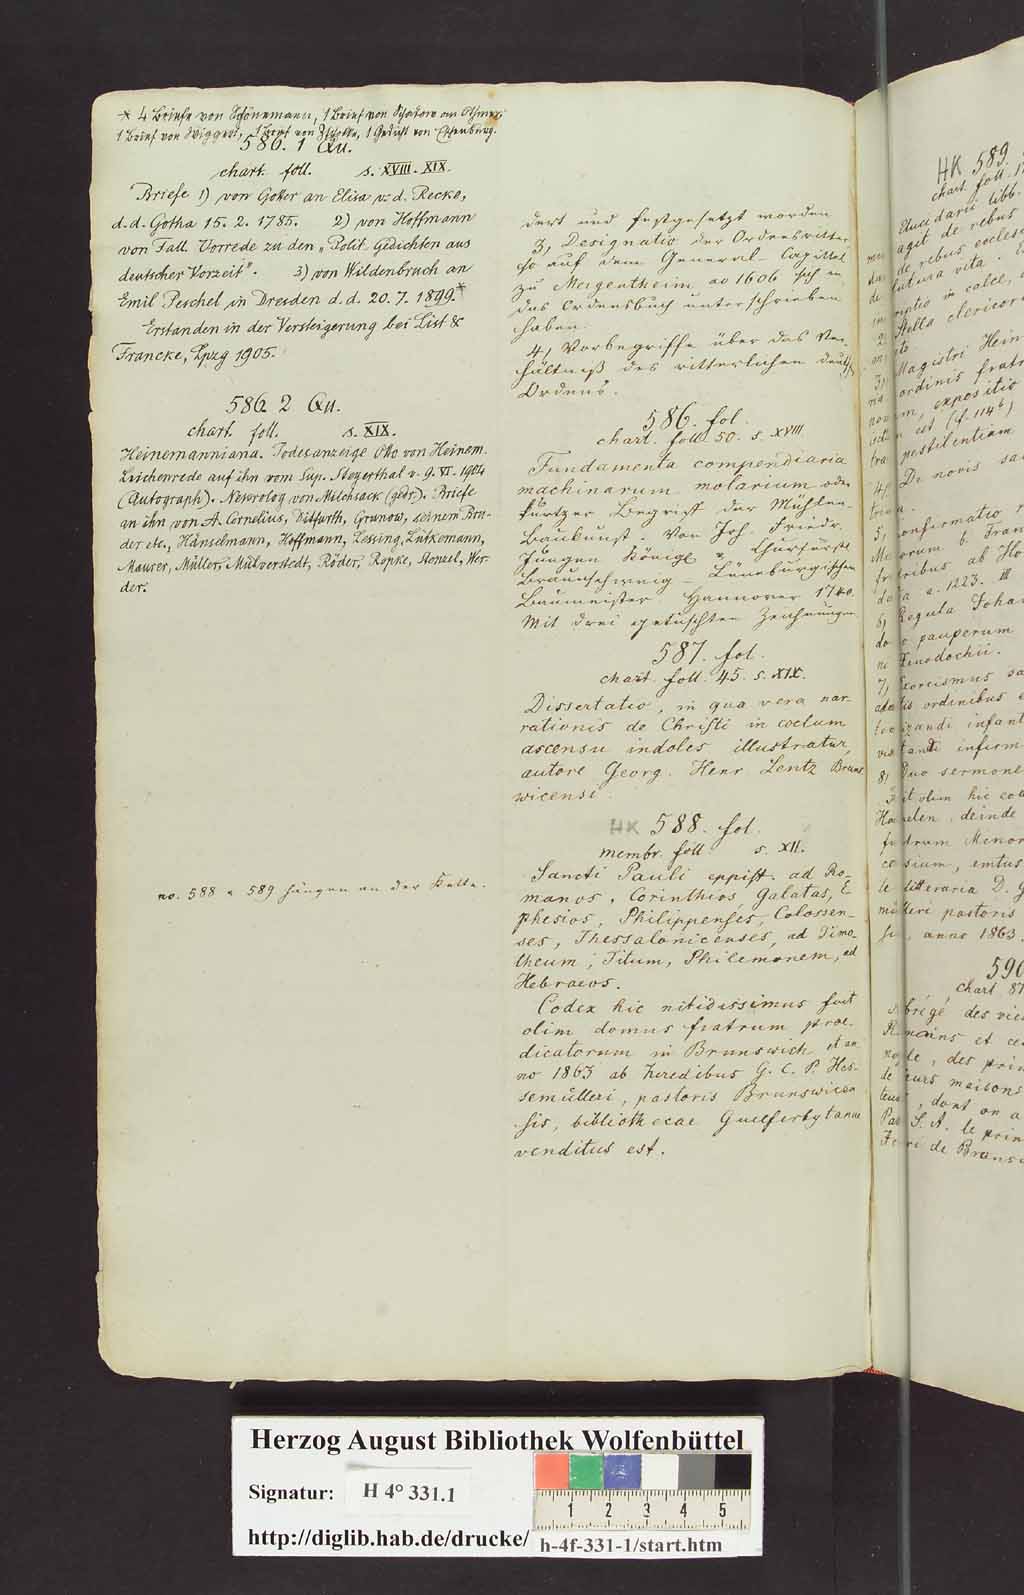 * 4 Briefe von Schönemann, 1 Brief von
1 Brief von Wiggert, 1 Brief von Zschokke, 1 Gedicht von Eschenburg.
586. 1 Qu.
chart. foll. s. XVIII. XIX.
Briefe 1) von Gotter an Elisa v. d. Recke,
d. d. Gotha 15. 2. 1785. 2) von Hoffmann
von Fall. Vorrede zu den „Polit. Gedichten aus
deutscher Vorzeit". 3) von Wildenbruch an
Emil Peschel in Dresden d. d. 20. 7. 1899.*
Erstanden in der Versteigerung bei List &
Francke, Lpzg 1905.
586. 2 Qu.
chart. foll. s. XIX.
Heinemanniana. Todesanzeige Otto von Heinem.
Leichenrede auf ihn vom Sup. Steyerthal v. 9. VI. 1904
(Autograph). Nekrolog von Milchsack (gedr.). Briefe
an ihn von A. Cornelius, Ditfurth, Grunow, seinem Bru-
der etc., Hänselmann, Hoffmann, Lessing, Lützemann,
Maurer, Müller, Mülverstedt, Röder, Ropke, Stenzel, Wer-
der.
no. 588 u 589 hängen an der Kette.
dert und festgesetzt worden
3, Designatio der Ordensritter
so auf dem General-Capittel
zu Mergentheim ao 1606 sich in
das Ordensbuch unterschrieben
haben.
4, Vorbegriffe über das Ver-
hältniß des ritterlichen deutsch
Ordens.
586. fol.
chart. foll. 50. s. XVIII
Fundamenta compendiaria
machinarum molarium oder
kurtzer Begriff der Mühlen-
Baukunst. Von Joh. Friedr.
Jungen Königl. u. Churfürstl
Braunschweig-Lüneburgischen
Baumeister. Hannover 1740.
Mit drei getuschten Zeichnungen
587. fol.
chart. foll. 45. s. XIX.
Dissertatio, in qua vera nar-
rationis de Christi in coelum
ascensu indoles illustratur,
autore Georg. Henr Lentz Bruns
wicensi
HK 588. fol.
membr. foll. s. XII.
Sancti Pauli eppist. ad Ro-
manos, Corinthios, Galatas, E
phesios, Philippenses, Colossen-
ses, Thessalonicenses, ad Timo-
theum, Titum, Philemonem, ad
Hebraeos.
Codex hic nitidissimus fuit
olim domus fratrum prae-
dicatorum in Brunswich et an
no 1863 ab heredibus G. C. P. Hes-
semülleri, pastoris Brunswicen
sis, bibliothecae Guelferbytanae
venditus est.
HK 589.
chart. foll.
Elucidarii libb.
agit de rebus
de rebus eccles
futura vita.
Stella clericor
Magistri Hein
ordinis fratr
expositio
est (f. 114b)
pestilentiam
De novis
5, onfirmatio
orum b. Fran
ribus ab Ho
a. 1223.
Regula Joha
pauperum
Xenodochii.
7, Exorcismus
ordinibus
infant
infirm
8, Duo sermone
olim hic
deinde
Minor
emtus
litteraria D. G
pastoris
anno 1863.
590
chart 87
brégé des
mains et ce
des prin
maisons
dont on a
S. A. le prin
de Bruns
Herzog August Bibliothek Wolfenbüttel
Signatur: H 4° 331.1
1 2 3 4 5
http://diglib.hab.de/drucke/ h-4f-331-1/start.htm